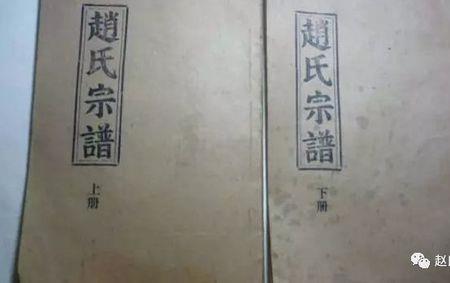 趙氏宗譜
上册
趙氏宗譜
下册
赵